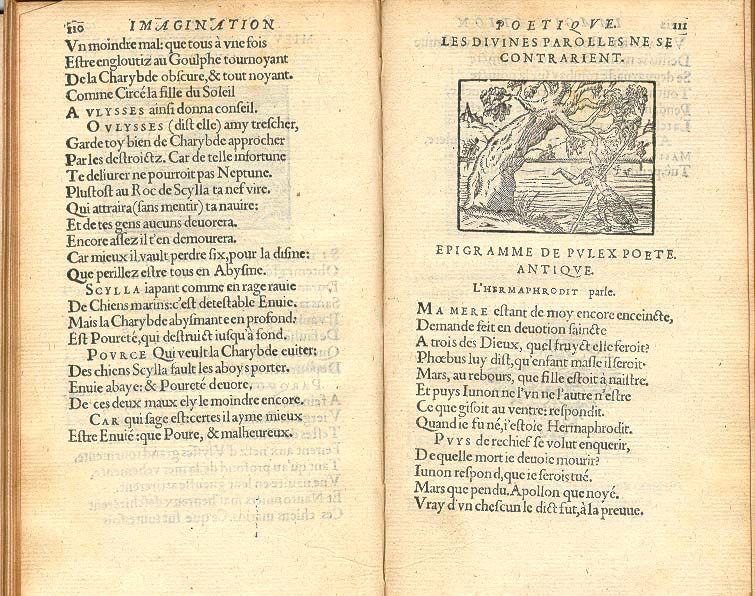 110 IMAGINATION
Vn moindre mal: que tous à vne fois
Estre engloutiz au Goulphe tournoyant
De la Charybde obscure, & tout noyant.
Comme Circé la fille du Soleil
A VLYSSES ainsi donna conseil.
O VLYSSES (dist elle) amy trescher,
Garde toy bien de Charybde approcher
Par les destroictz. Car de telle infortune
Te deliurer ne pourroit pas Neptune.
Plustost au Roc de Scylla ta nef vire,
Qui attraira (sans mentir) ta nauire:
Et de tes gens aucuns deuorera.
Encore assez il t'en demourera.
Car mieux il vault perdre six, pour la disme:
Que perillez estre tous en Abysme.
SCYLLA iapant comme en rage rauie
De Chiens marins: c'est detestable Enuie.
Mais la Charybde abysmante en profond,
Est Poureté, qui destruict iusqu'à fond.
POVRCE Qui veult la Charybde euiter:
Des chiens Scylla fault les aboys porter.
Enuie abaye: & Poureté deuore,
De ces deux maux ely le moindre encore.
CAR qui sage est: certes il ayme mieux
Estre Enuié: que Poure, & malheureux.
POETIQVE. 111
LES DIVINES PAROLLES NE SE
CONTRARIENT.
EPIGRAMME DE PVLEX POETE
ANTIQVE.
L'HERMAPHRODIT parle.
MA MERE estant de moy encore enceincte,
Demande feit en deuotion saincte
A trois des Dieux, quel fruyct elle feroit?
Phœbus luy dist, qu'enfant masle il seroit.
Mars, au rebours, que fille estoit à naistre.
Et puys Iunon ne l'vn ne l'autre n'estre
Ce que gisoit au ventre: respondit.
Quand ie fu né, i'estoie Hermaphrodit.
PVYS de rechief se volut enquerir,
De quelle mort ie deuoie mourir?
Iunon respond, que ie serois tué.
Mars que pendu, Apollon que noyé.
Vray d'vn chescun le dict fut, à la preuue.